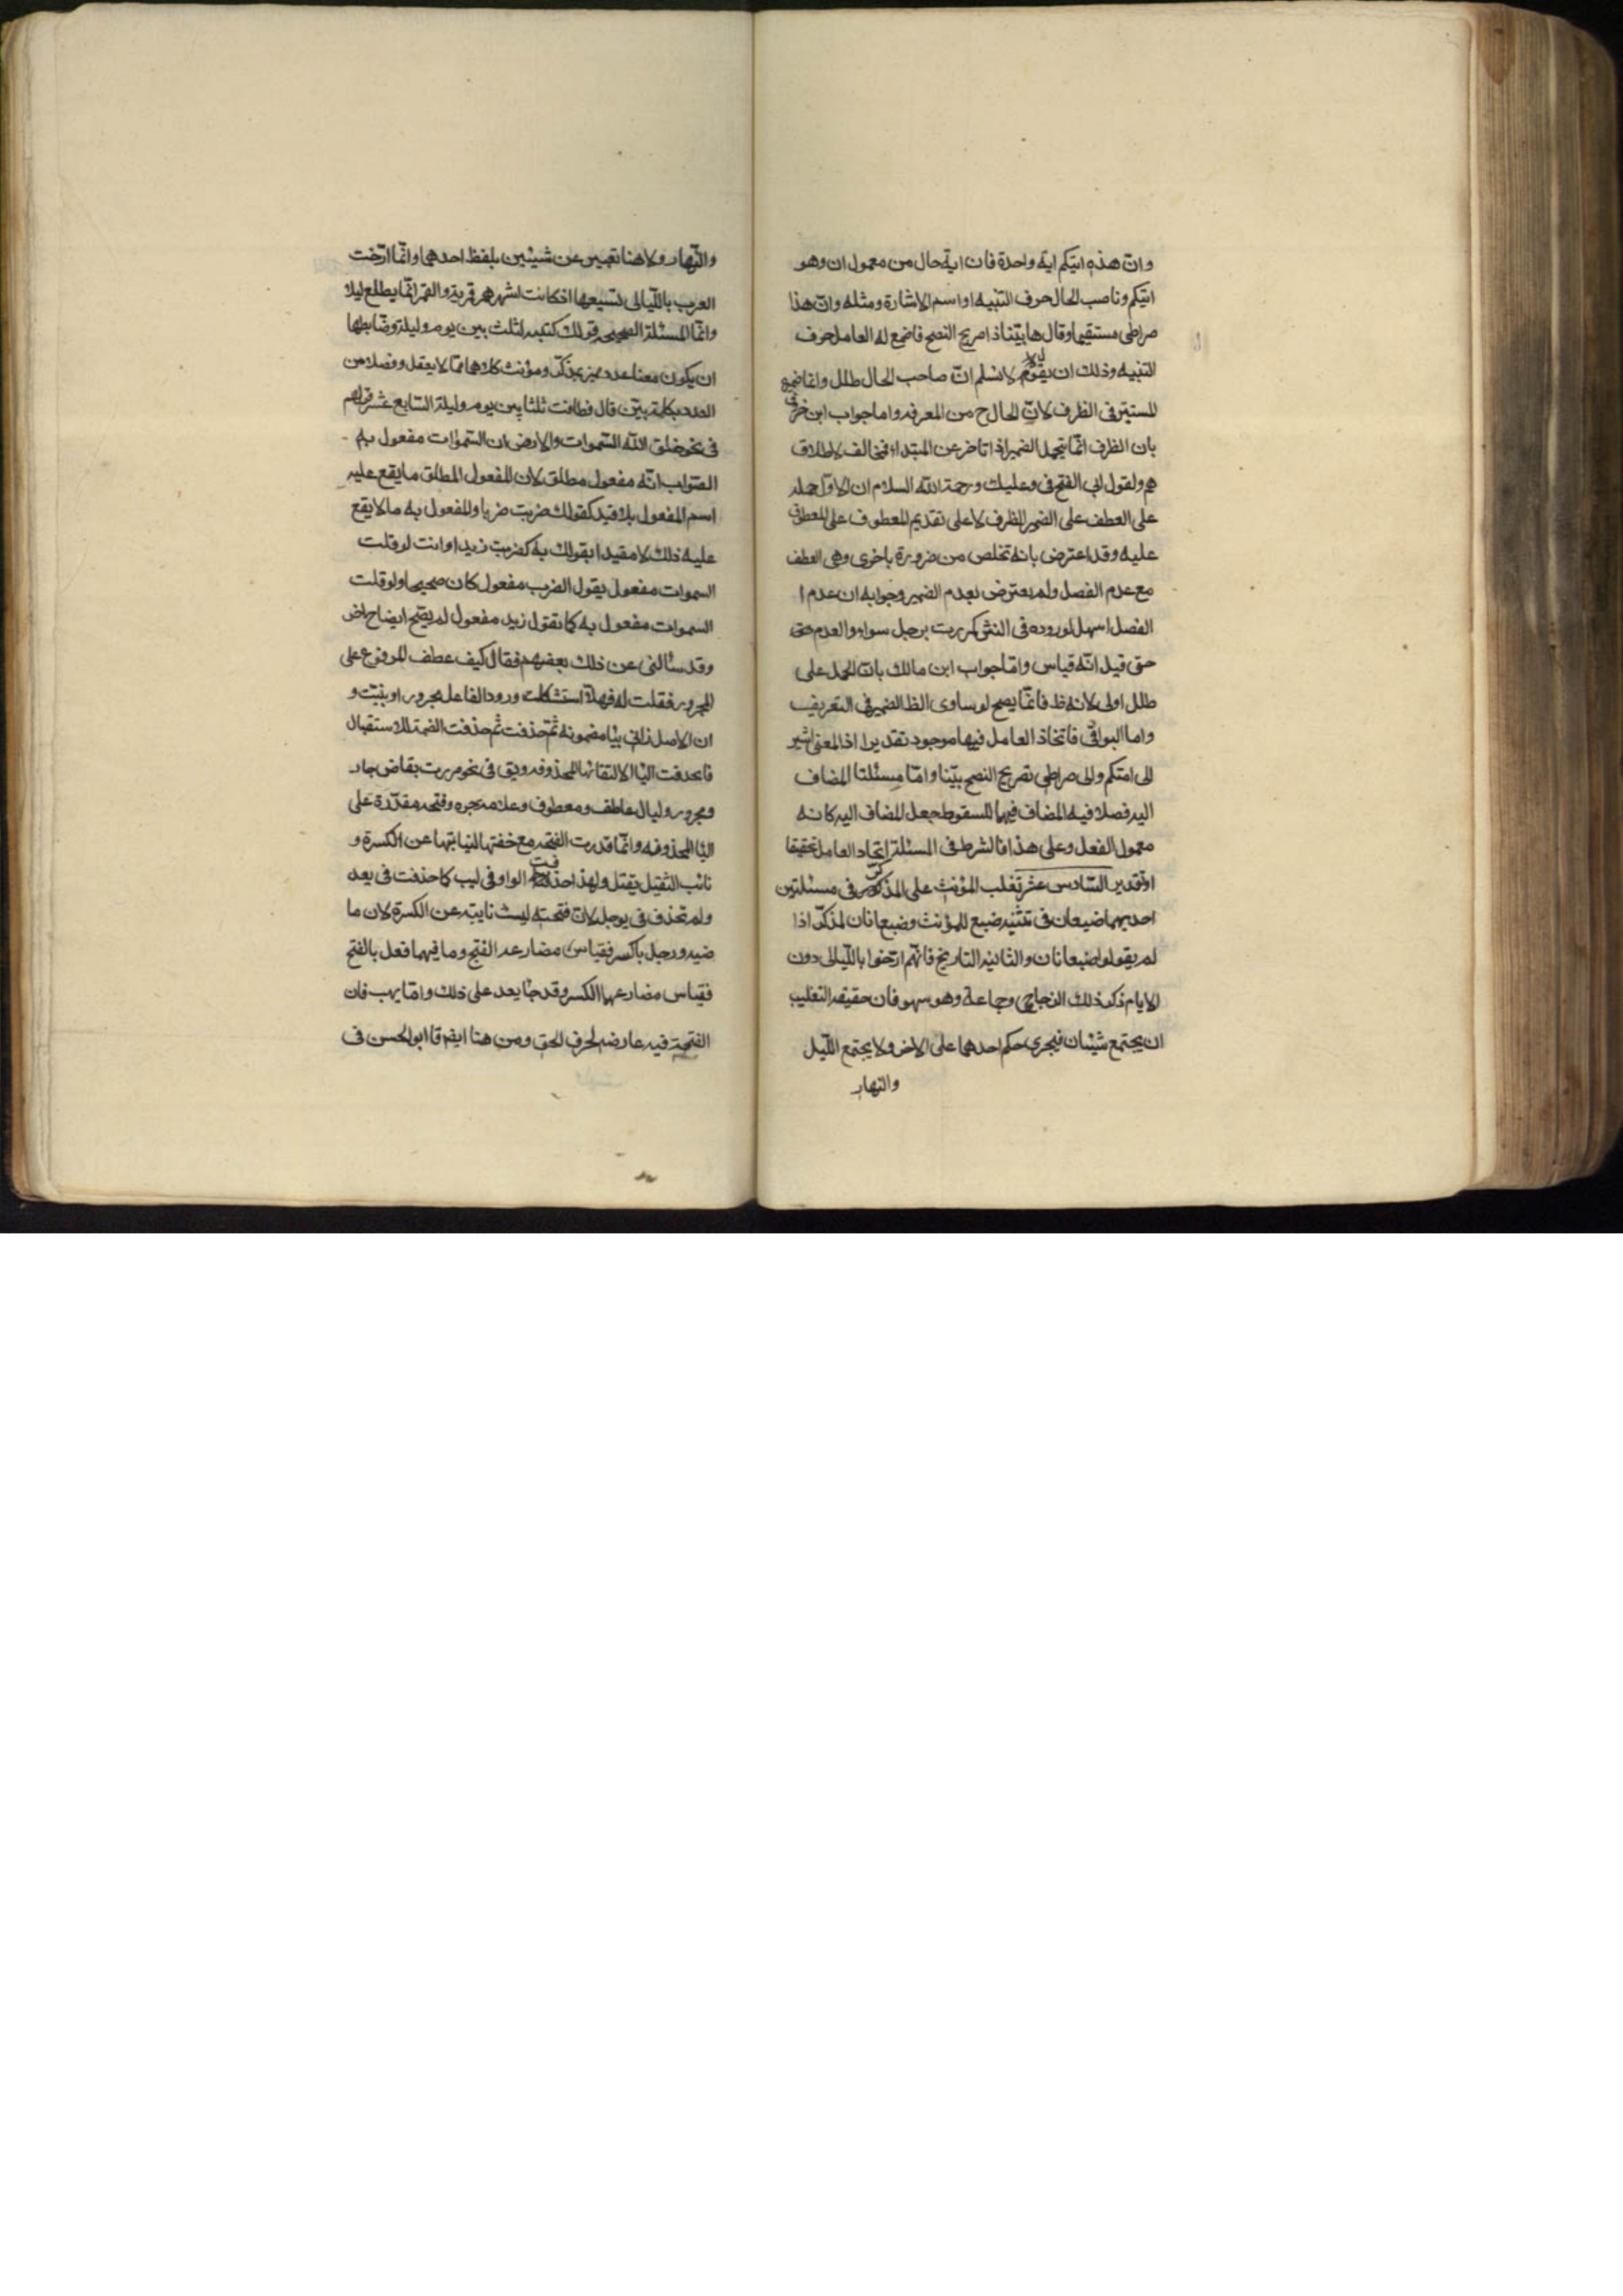 وانّ هذه امّتكم امّة واحدة فان امّة حال من معمول ان وهو
امّتكم وناصب الحال حرف التنبيه او اسم الاشارة ومثله وانّ هذا
صراطى مستقيما وقال ها بيّنا ذا صريح النصح فاصغ له العامل حرف
التنبيه وذلك ان يقول لا نسلم انّ صاحب الحال طلل وانما ضمير
المستتر فى الظرف لانّ الحال ح من المعرفه واما جواب ابن خروف
بان الظرف انّما يتحمل الضمير اذا تاخر عن المبتداء فمخالف لاطلاق
هم ولقول ابى الفتح فى وعليك ورحمة الله السلام ان الاولى حمله
على العطف على الضمير الظرف لا على تقديم المعطوف على المعطوف
عليه وقد اعترض بانه تخلص من ضرورة باخرى وهى العطف
مع عدم الفصل ولم يعترض بعدم الضمير وجوابه ان عدم ا
الفصل اسهل لوروده فى النثر كمررت برجل سواء والعدم حتى
حتى قيل انّه قياس وامّا جواب ابن مالك بانّ الحمل على
طلل اولى لانه ظ فانّما يصح لو ساوى الظا الضمير فى التعريف
واما البواقى فاتحاد العامل فيها موجود تقديرا اذ المعنى اشير
الى امتكم والى صراطى تصريح النصح بيّنا وامّا مسئلتا المضاف
اليه فصلاحية المضاف فيهما للسقوط جعل المضاف اليه كانه
معمول الفعل وعلى هذا فالشرط فى المسئلة اتحاد العامل تحقيقا
او تقدير السّادس عشر تغلب المؤنث على المذكر فى مسئلتين
احديهما ضبعان فى تثنيه ضبع للمؤنث وضبعانان لمذكّر اذا
لم يقولوا ضبعانان والثانيه التاريخ فانّهم ارّخوا باللّيالى دون
الايام ذكر ذلك الزجاجى وجماعة وهو سهو فان حقيقه التغليب
ان يجتمع شيئان فيجرى حكم احدهما على الاخر ولا يجتمع اللّيل
والنهار
والنّهار ولا هنا تعبير عن شيئين بلفظ احدهما وانّما ارّخت
العرب باللّيالى لسبقها اذ كانت اشهرهم قمرية والقمر انّما يطلع ليلا
وانّما المسئلة الصحيحه قولك كتبته لثلث بين يوم وليلة وضابطها
ان يكون معنا عدد مميز بمذكّر ومؤنث كلاهما ممّا لا يعقل وفصلا من
العدد بكلمة بين قال فطافت ثلثا بين يوم وليلة السّابع عشر قولهم
فى نحو خلق الله السّموات والارض ان السّموات مفعول به
الصّواب انّه مفعول مطلق لان المفعول المطلق ما يقع عليه
اسم المفعول بلا قيد كقولك ضربت ضربا والمفعول به ما لا يقع
عليه ذلك لا مقيدا بقولك به كضربت زيدا وانت لو قلت
السموات مفعول يقول الضرب مفعول كان صحيحا ولو قلت
السموات مفعول به كما تقول زيد مفعول لم يصّح ايضاح
وقد سئالنى عن ذلك بعضهم فقال كيف عطف المرفوع على
المجرور فقلت له فهلّا استشكلت ورود الفاعل مجرور او بيّنت و
ان الاصل زانى بيا مضمونه ثمّ حذفت ثم حذفت الضمة للاستقبال
فا حدفت اليا الالتقائها المحذوفه ويق فى نحو مررت بقاض جار
ومجرور وليال عاطف ومعطوف وعلامة جره وفتحه مقدّرة على
اليا المحذوفه وانّما قدرت الفتحه مع خفتها لنيابتها عن الكسرة و
نائب الثقيل يقتل ولهذا حذفت الواو فى ليب كما حذفت فى يعد
ولم تحذف فى يوجل لانّ فتحته ليست نايبة عن الكسرة لان ما
ضيه ورجل باكسر فقياس مضارعه الفتح وما فيهما فعل بالفتح
فقياس مضارعهما الكسر وقد جا يعد على ذلك وامّا يهب فان
الفتحة فيه عارضه لحرف الحق ومن هنا ايضم قا ابو الحسن فى